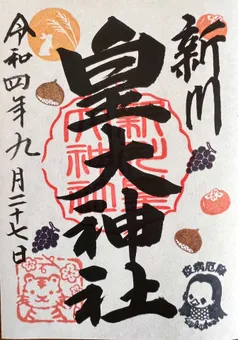 新川
皇大神社
令和四年九月二十七日
疫病厄除